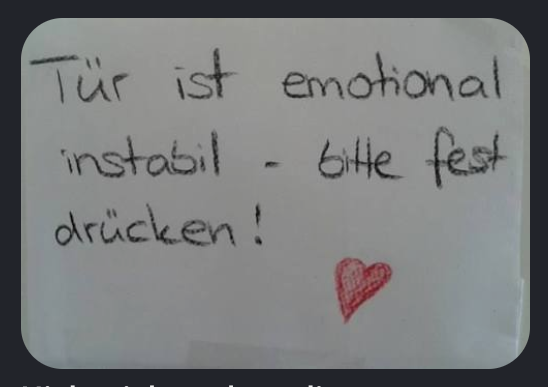 Tür ist emotional
instabil - bitte fest
drücken!